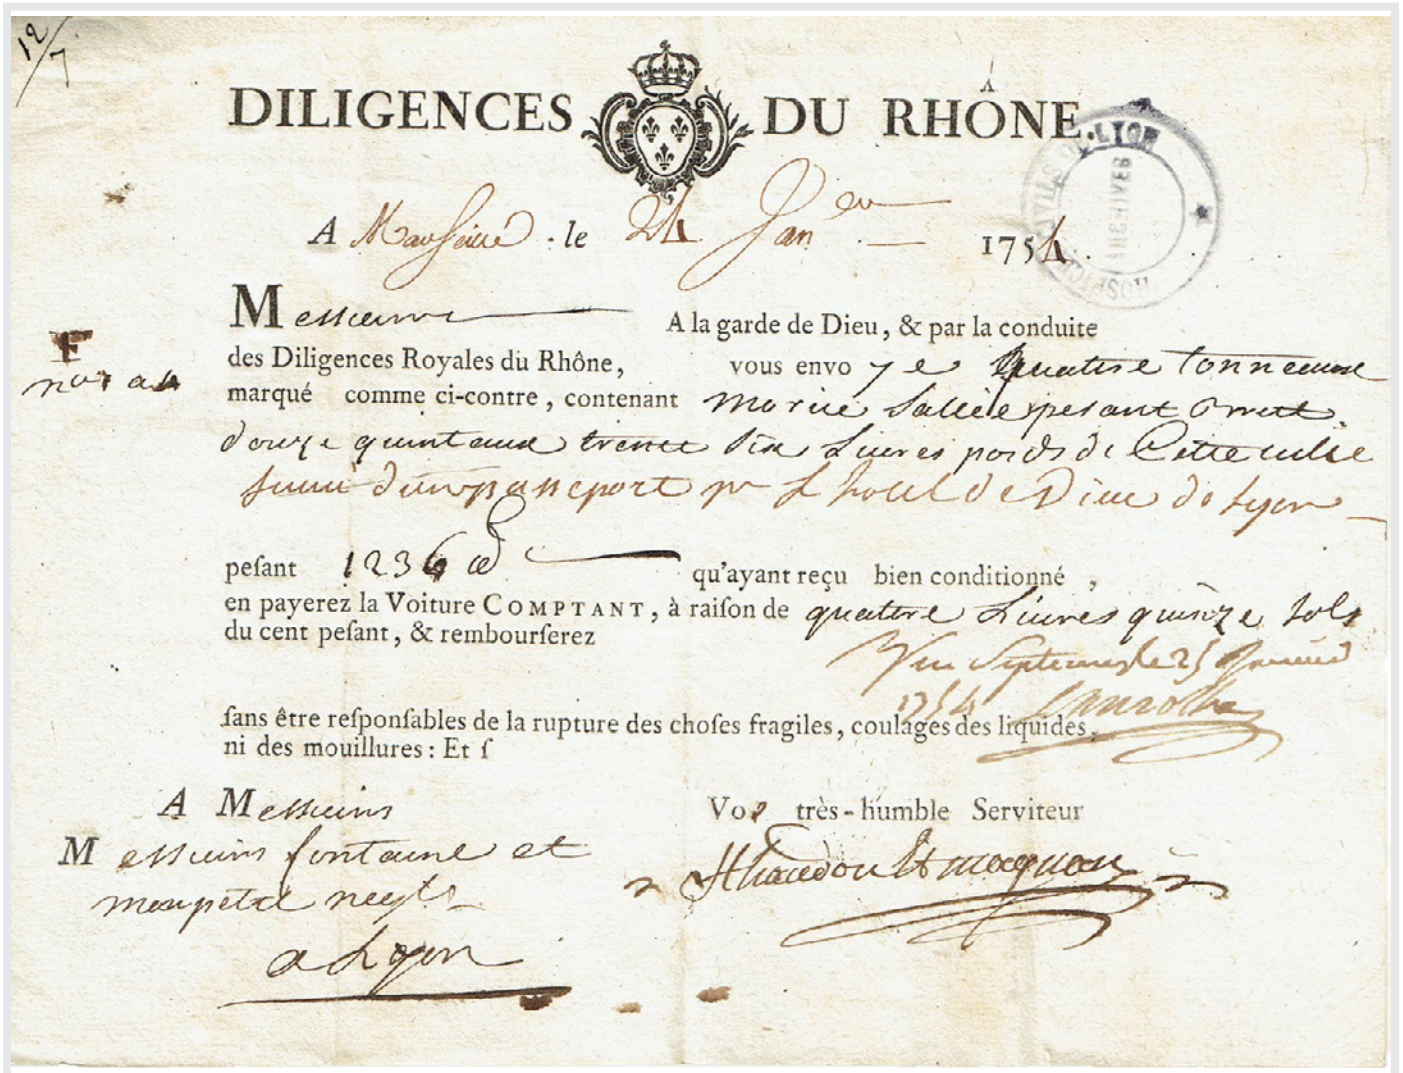 12/7
DILIGENCES DU RHÔNE.
HOSPICES CIVILS DE LYON
ARCHIVES
A Marseille le 24 Janer 1754.
Messieurs A la garde de Dieu, & par la conduite
des Diligences Royales du Rhône, vous envoye quatre tonneaux
F
marqué comme ci-contre, contenant morue sallée pesant
douze quintaux trente six Livres poids de
pr L'hotel de Dieu de Lyon
peſant 1236 qu'ayant reçu bien conditionné,
en payerez la Voiture COMPTANT, à raiſon de quatre Livres quinze sols
du cent peſant, & rembourſerez
Veu Septemes le 25 Janvier
1754
ſans être reſponſables de la rupture des choſes fragiles, coulages des liquides,
ni des mouillures : Et ſ
A Messieurs Vos très-humble Serviteur
Messieurs fontaine et
negts
a Lyon